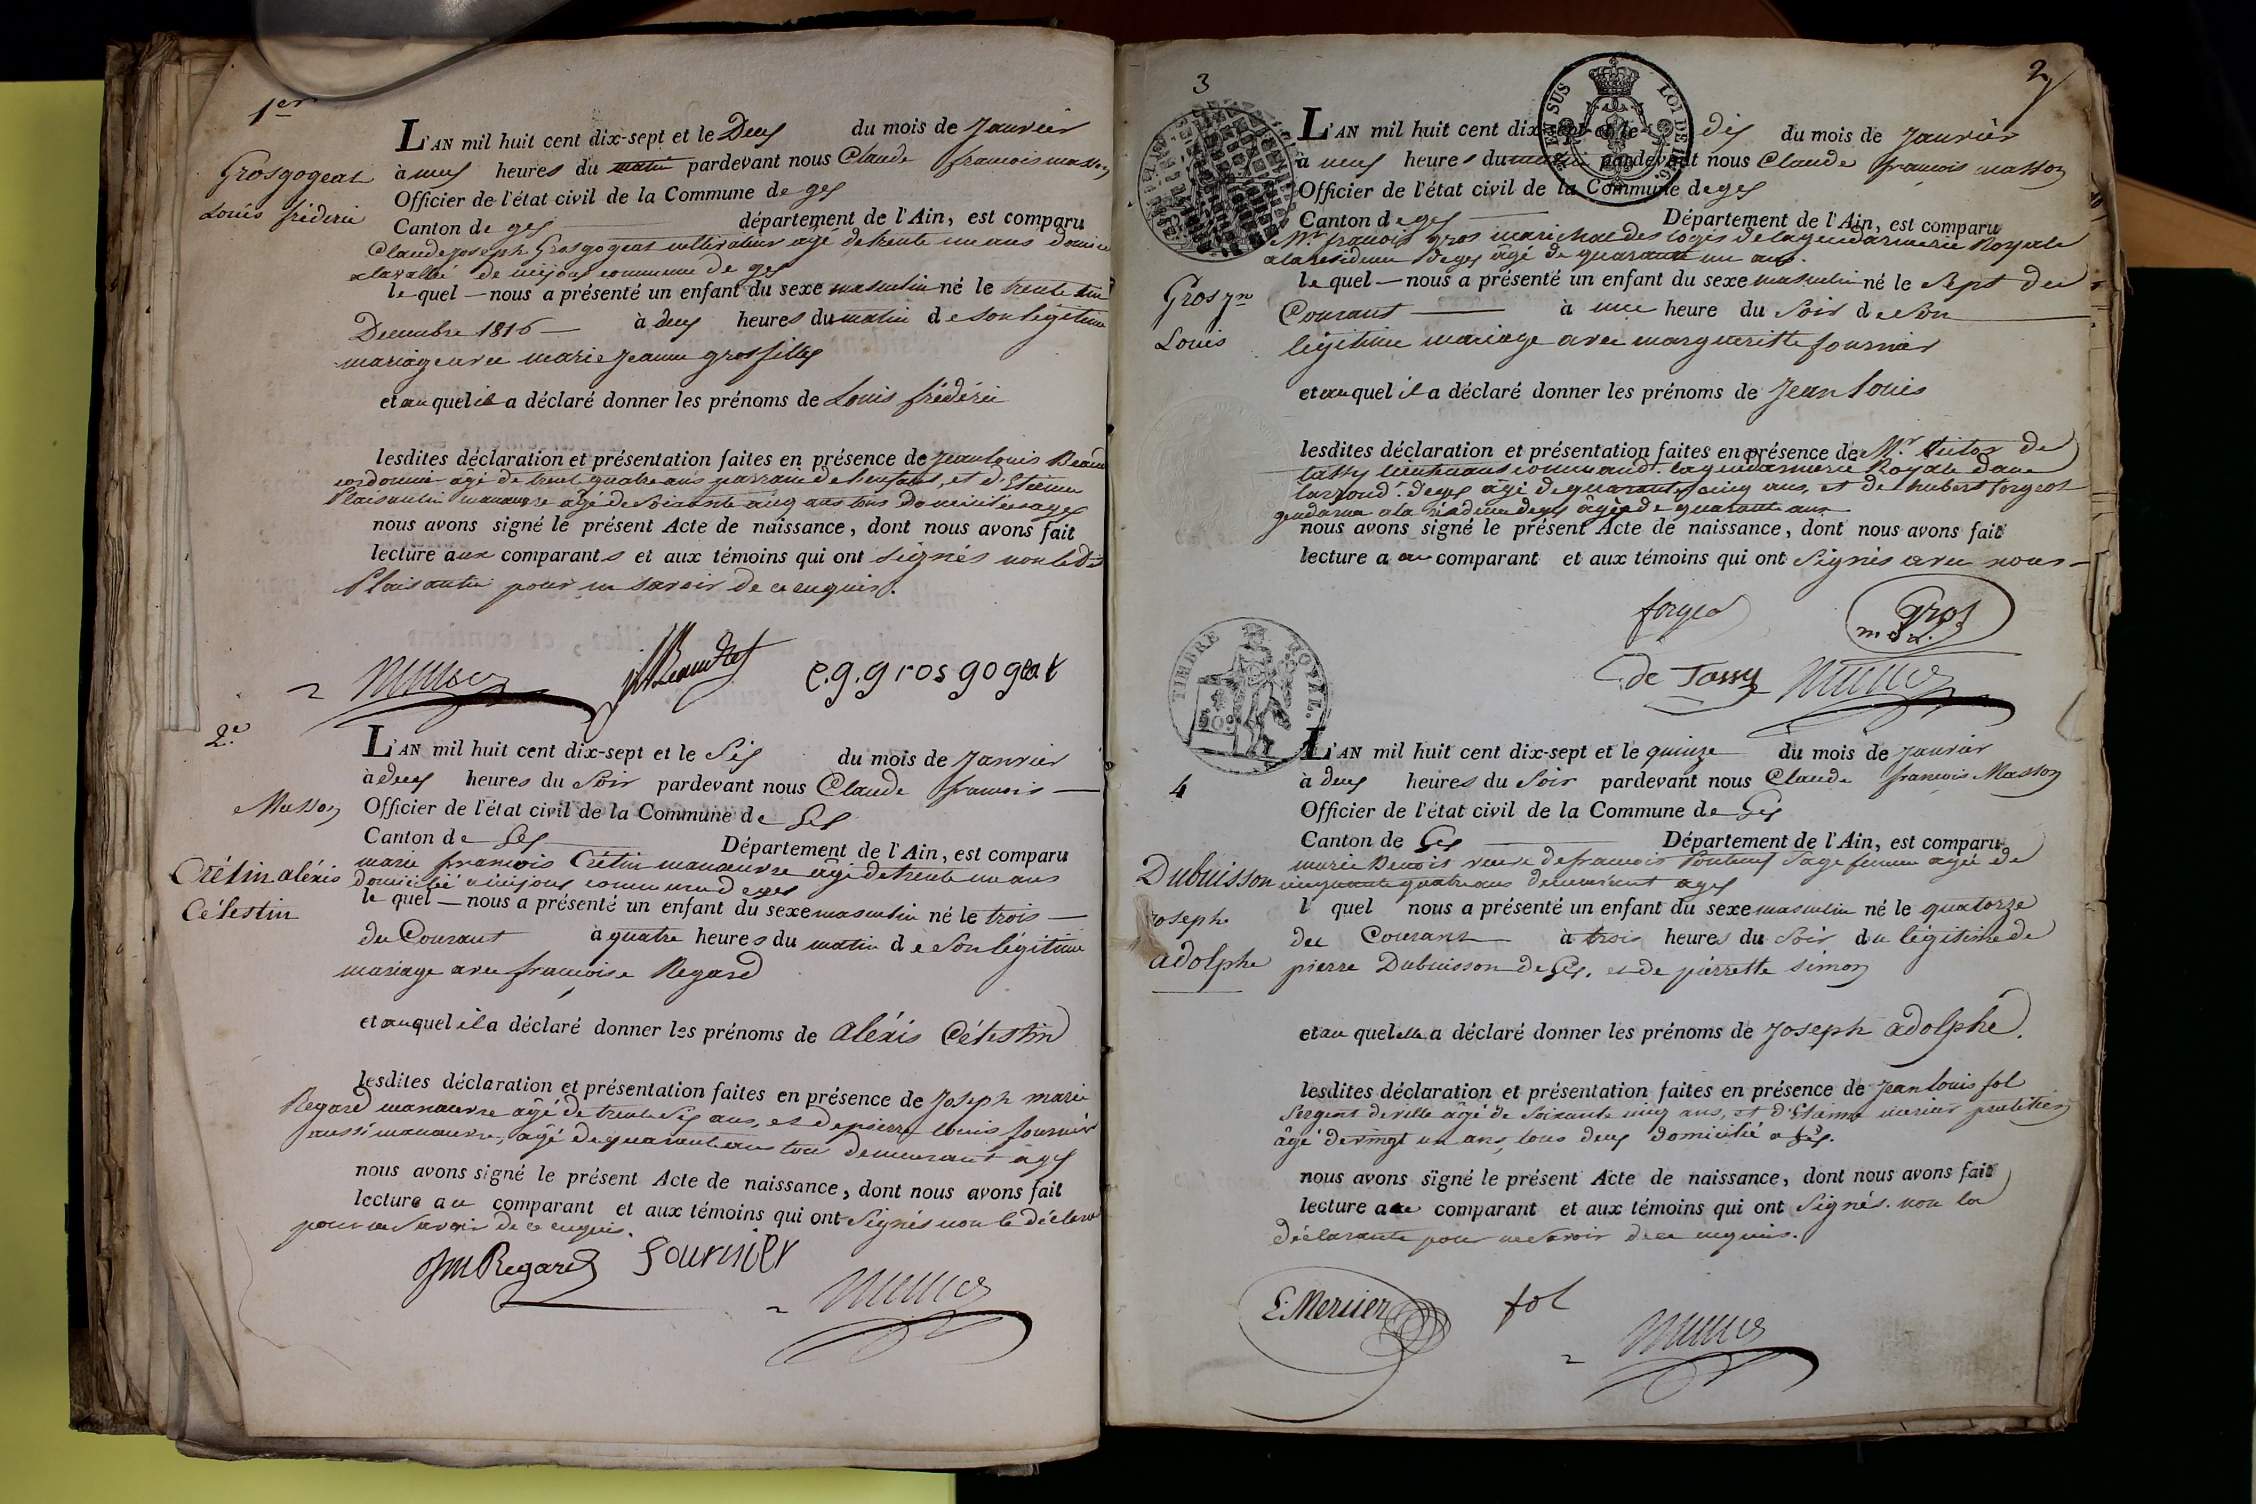 1er
Grosgogeat
Louis frédéric
L'AN mil huit cent dix-sept et le Deux du mois de Janvier
à neuf heures du matin pardevant nous Claude françois masson
Officier de l'état civil de la Commune de gex
Canton de gex département de l'Ain, est comparu
Claude joseph Grosgogeat cultivateur âgé de trente un ans domicilié
a la vallée de mijoux commune de gex
lequel nous a présenté un enfant du sexe masculin né le trente
Decembre 1816 à deux heures du matin de son légitime
mariage avec marie jeanne grosfilley
et auquel il a déclaré donner les prénoms de Louis frédéric
lesdites déclaration et présentation faites en présence de Jean Louis
cordonnier âgé de trente quatre ans parrain de l'enfant, et d'Etienne
Plaisantin manœuvre âgé de soixante cinq ans tous domiciliés a gex
nous avons signé le présent Acte de naissance, dont nous avons fait
lecture aux comparants et aux témoins qui ont signés non le dit
Plaisantin pour ne savoir de ce enquis.
e.g. grosgogeat
2e
Masson
Crétin aléxis
Célestin
L'AN mil huit cent dix-sept et le Six du mois de Janvier
à deux heures du Soir pardevant nous Claude francois
Officier de l'état civil de la Commune de Gex
Canton de Gex Département de l'Ain, est comparu
marie francois Crétin manœuvre âgé de trente un ans
domicilié a mijoux commune de gex
lequel nous a présenté un enfant du sexe masculin né le trois
du Courant à quatre heures du matin de Son légitime
mariage avec françoise Regard
et auquel il a déclaré donner les prénoms de aléxis Célestin
lesdites déclaration et présentation faites en présence de Joseph marie
Regard manœuvre âgé de trente Six ans, et de pierre louis fournier
aussi manœuvre, âgé de quarante ans tous demeurant a gex
nous avons signé le présent Acte de naissance, dont nous avons fait
lecture au comparant et aux témoins qui ont Signés non le déclarant
pour ne Savoir de ce enquis.
JM Regard fournier
3
2
TIMBRE ROYAL.
50c
Gros Jn
Louis
L'AN mil huit cent dix-sept et le dix du mois de Janvier
à neuf heures du matin pardevant nous Claude francois masson
Officier de l'état civil de la Commune de gex
Canton de gex Département de l'Ain, est comparu
Mr françois gros maréchal des logis de la gendarmerie Royale
a la résidence de gex âgé de quarante un ans.
lequel nous a présenté un enfant du sexe masculin né le Sept du
Courant à une heure du Soir de Son
légitime mariage avec margueritte fournier
et auquel il a déclaré donner les prénoms de Jean Louis
lesdites déclaration et présentation faites en présence de Mr. Victor de
tassy lieutenant command.t la gendarmerie Royale dans
l'arrond.t de gex âgé de quarante cinq ans, et de hubert forgeot
gendarme a la résidence de gex âgé de quarante ans
nous avons signé le présent Acte de naissance, dont nous avons fait
lecture a au comparant et aux témoins qui ont Signés avec nous
forgeot Gros
de Tassy
4
Dubuisson
Joseph
adolphe
L'AN mil huit cent dix-sept et le quinze du mois de Janvier
à deux heures du Soir pardevant nous Claude francois Masson
Officier de l'état civil de la Commune de Gex
Canton de Gex Département de l'Ain, est comparu
marie Benoit veuve de francois Sage femme agée de
cinquante quatre ans demeurant a gex
l quel nous a présenté un enfant du sexe masculin né le quatorze
du Courant à trois heures du Soir du légitime de
pierre Dubuisson de Gex. et de pierrette simon
et auquel elle a déclaré donner les prénoms de Joseph adolphe.
lesdites déclaration et présentation faites en présence de Jean louis fol
Sergent de ville âgé de Soixante cinq ans, et d'Etienne mercier praticien
âgé de vingt un ans, tous deux domicilié a Gex.
nous avons signé le présent Acte de naissance, dont nous avons fait
lecture a au comparant et aux témoins qui ont Signés. non la
déclarante pour ne Savoir de ce enquis.
E. Mercier fol